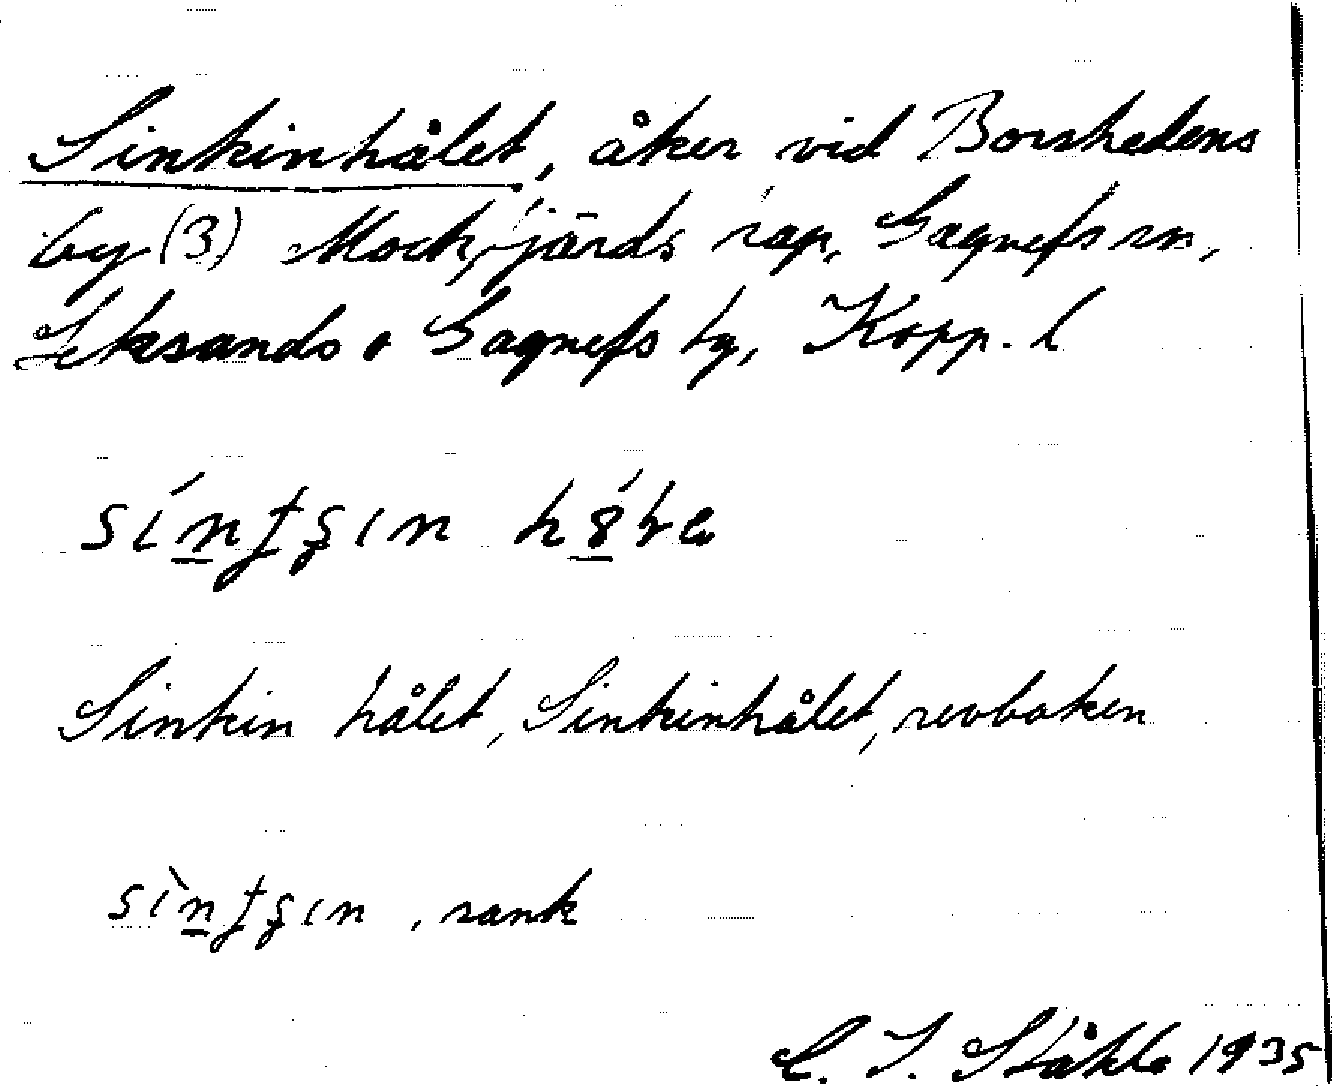 Sinkinhålet, åker vid Borshedens
by (3) Mockfjärds kap. Gagnefs sn,
Leksands o Gagnefs tg, Kopp. l
Sinkin hålet, Sinkinhålet, revboken
, sank
C. I. Ståhle 1935